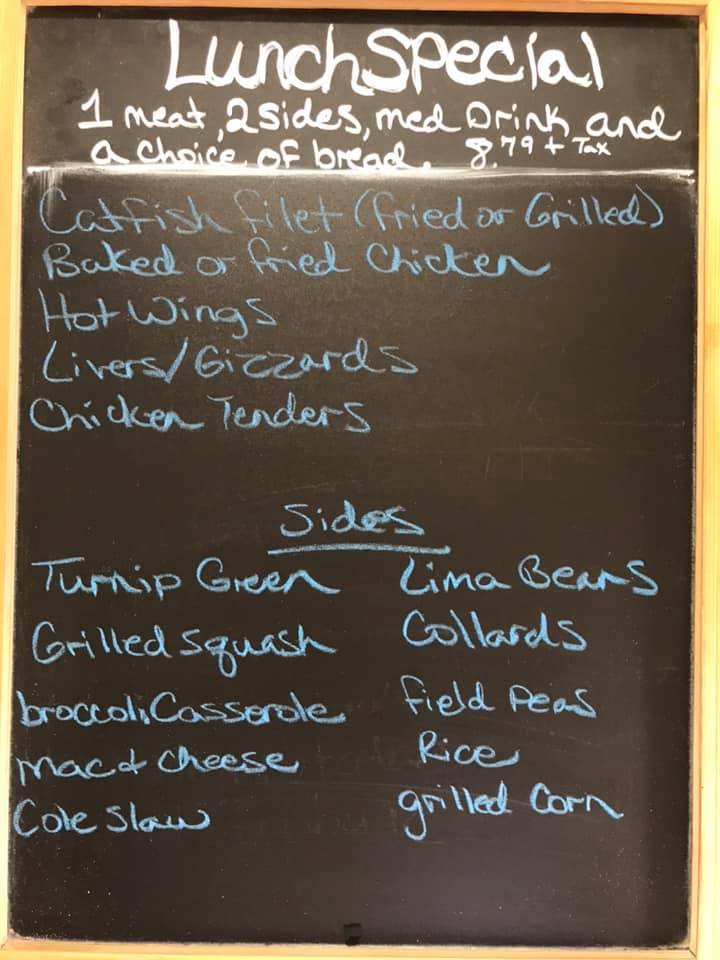 Lunch Special
1 meat, 2 sides, med Drink and
a choice of bread. 8.79 + Tax
Catfish filet (fried or Grilled)
Baked or fried Chicken
Hot Wings
Livers/Gizzards
Chicken Tenders
Sides
Turnip Green
Grilled squash
broccoli Casserole
Mac & Cheese
Cole slaw
Lima Beans
Collards
field peas
Rice
grilled Corn